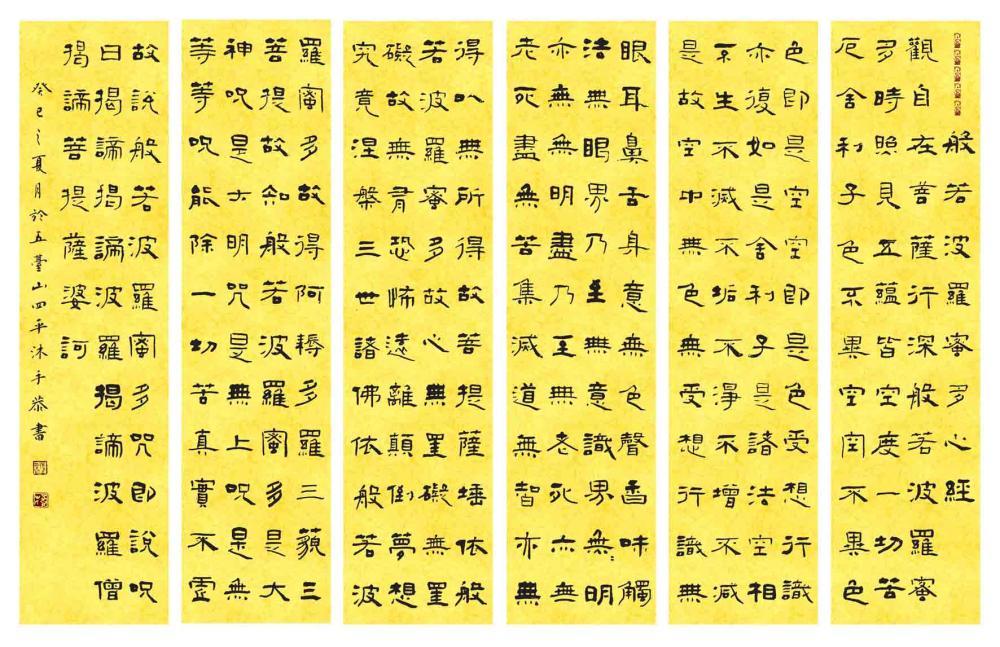 般若波羅蜜多心經
觀自在菩薩行深般若波羅蜜
多時照見五蘊皆空度一切苦
厄舍利子色不異空空不異色
色即是空空即是色受想行識
亦復如是舍利子是諸法空相
不生不滅不垢不淨不增不減
是故空中無色無受想行識無
眼耳鼻舌身意無色聲香味觸
法無眼界乃至無意識界無明
亦無無明盡乃至無老死亦無
老死盡無苦集滅道無智亦無
得以無所得故菩提薩埵依般
若波羅蜜多故心無罣礙無罣
礙故無有恐怖遠離顛倒夢想
究竟涅槃三世諸佛依般若波
羅蜜多故得阿耨多羅三藐三
菩提故知般若波羅蜜多是大
神咒是大明咒是無上咒是無
等等咒能除一切苦真實不虛
故說般若波羅蜜多咒即說咒
曰揭諦揭諦波羅揭諦波羅僧
揭諦菩提薩婆訶
癸巳之夏月於五臺山四平沐手恭書